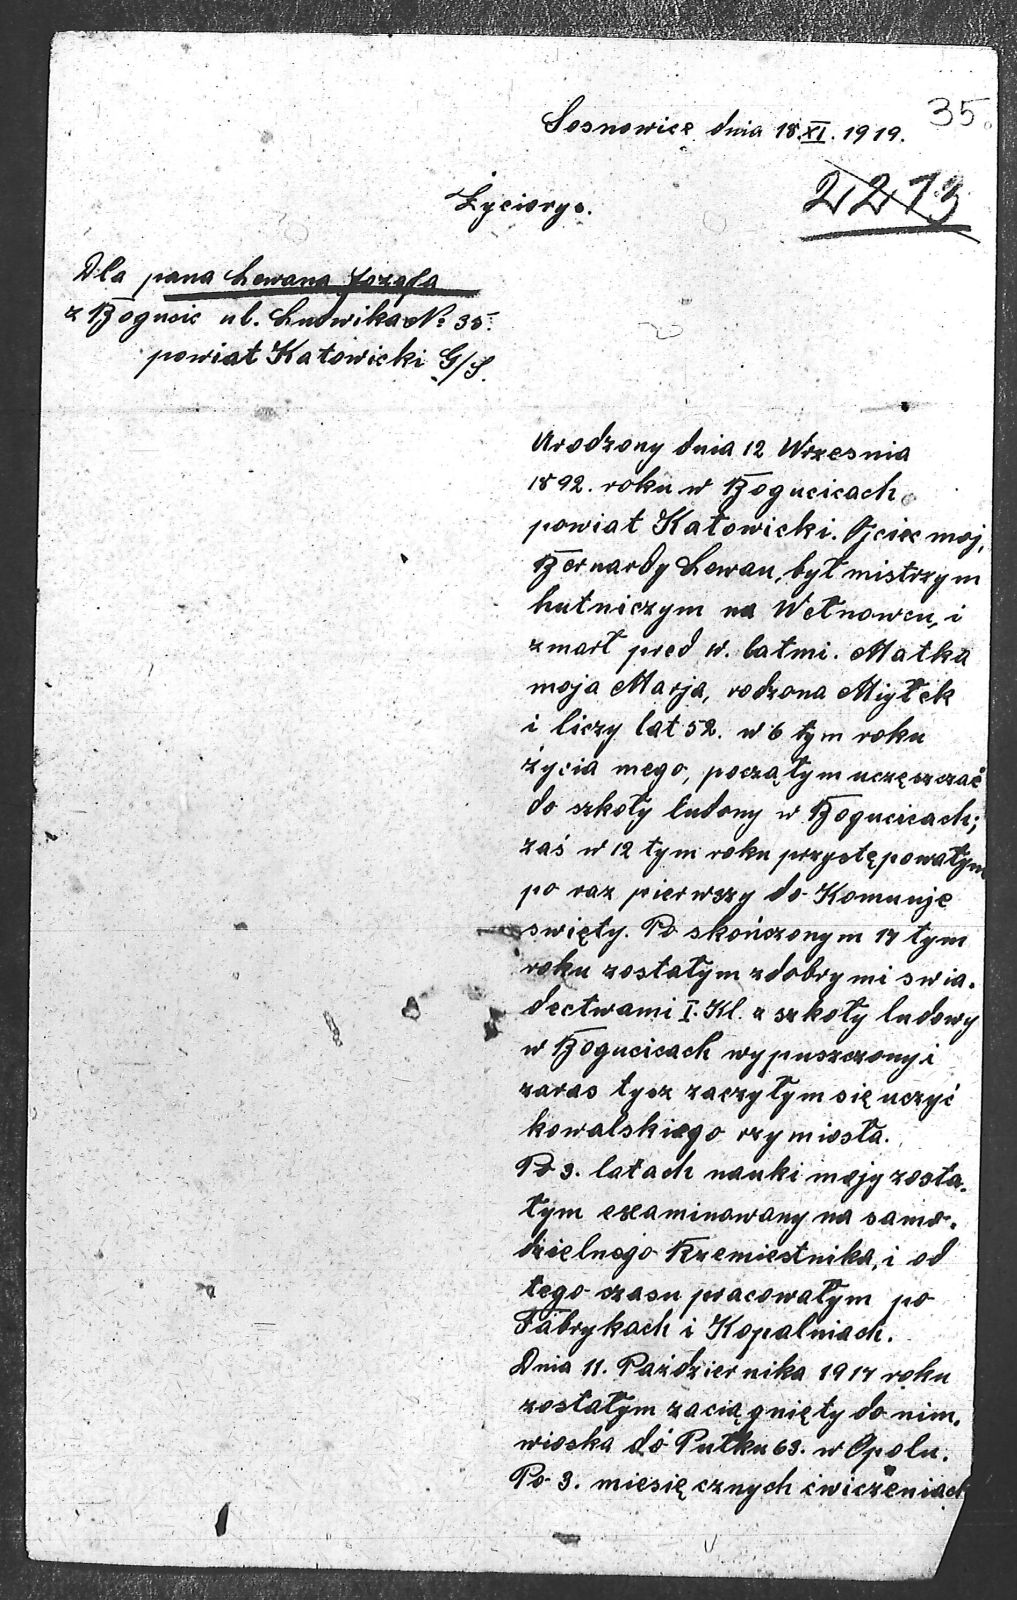 35.
Sosnowice dnia 18.XI.1919.
2213
Życiorys.
Dla pana Lewana Jozefa
z Bogucic ul. Ludwika № 35.
powiat Katowicki G/S.
Urodzony dnia 12 Wrzesnia
1892. roku w Bogucicach
powiat Katowicki. Ojciec moj,
Bernardy Lewan, był mistrzym
hutniczym na Wełnowcu, i
zmarł pred w. latmi. Matka
moja Marja, rodzona Miyłek
i liczy lat 52. w 6 tym roku
życia mego, począłym uczęszczać
do szkoły ludony w Bogucicach;
zaś w 12 tym roku przystępowałym
po raz pierwszy do Komunje
swięty. Po skończonym 14 tym
roku zostałym zdobrymi swia.
dectwami I. Kl. z szkoły ludowy
w Bogucicach wypuszczony i
zaras tysz zaczyłym się uczyć
kowalskiego rzymiosła.
Po 3. latach nauki mojy zosta.
łym examinowany na samo.
dzielnego Rzemiestnika, i od
tego czasu pracowałym po
Fabrykach i Kopalniach.
Dnia 11. Paździer nika 1914 roku
zostałym zaciągnięty do nim.
wioska dó Pułku 63. w Opolu.
Po 3. miesięcznych ćwiczeniach